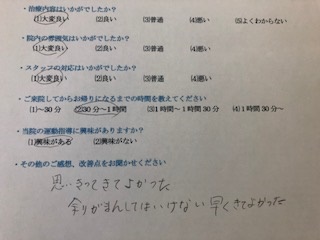 ・治療内容はいかがでしたか?
(1)大変良い (2)良い (3)普通 (4)悪い (5)よくわからない
・院内の雰囲気はいかがでしたか?
(1)大変良い (2)良い (3)普通 (4)悪い
・スタッフの対応はいかがでしたか?
(1)大変良い (2)良い (3)普通 (4)悪い
・ご来院してからお帰りになるまでの時間を教えてください
(1)～30分 (2)30分～1時間 (3)1時間～1時間30分 (4)1時間30分～
・当院の運動指導に興味がありますか?
(1)興味がある (2)興味がない
・その他のご感想、改善点をお聞かせください
思いきってきてよかった
余りがまんしてはいけない 早くきてよかった